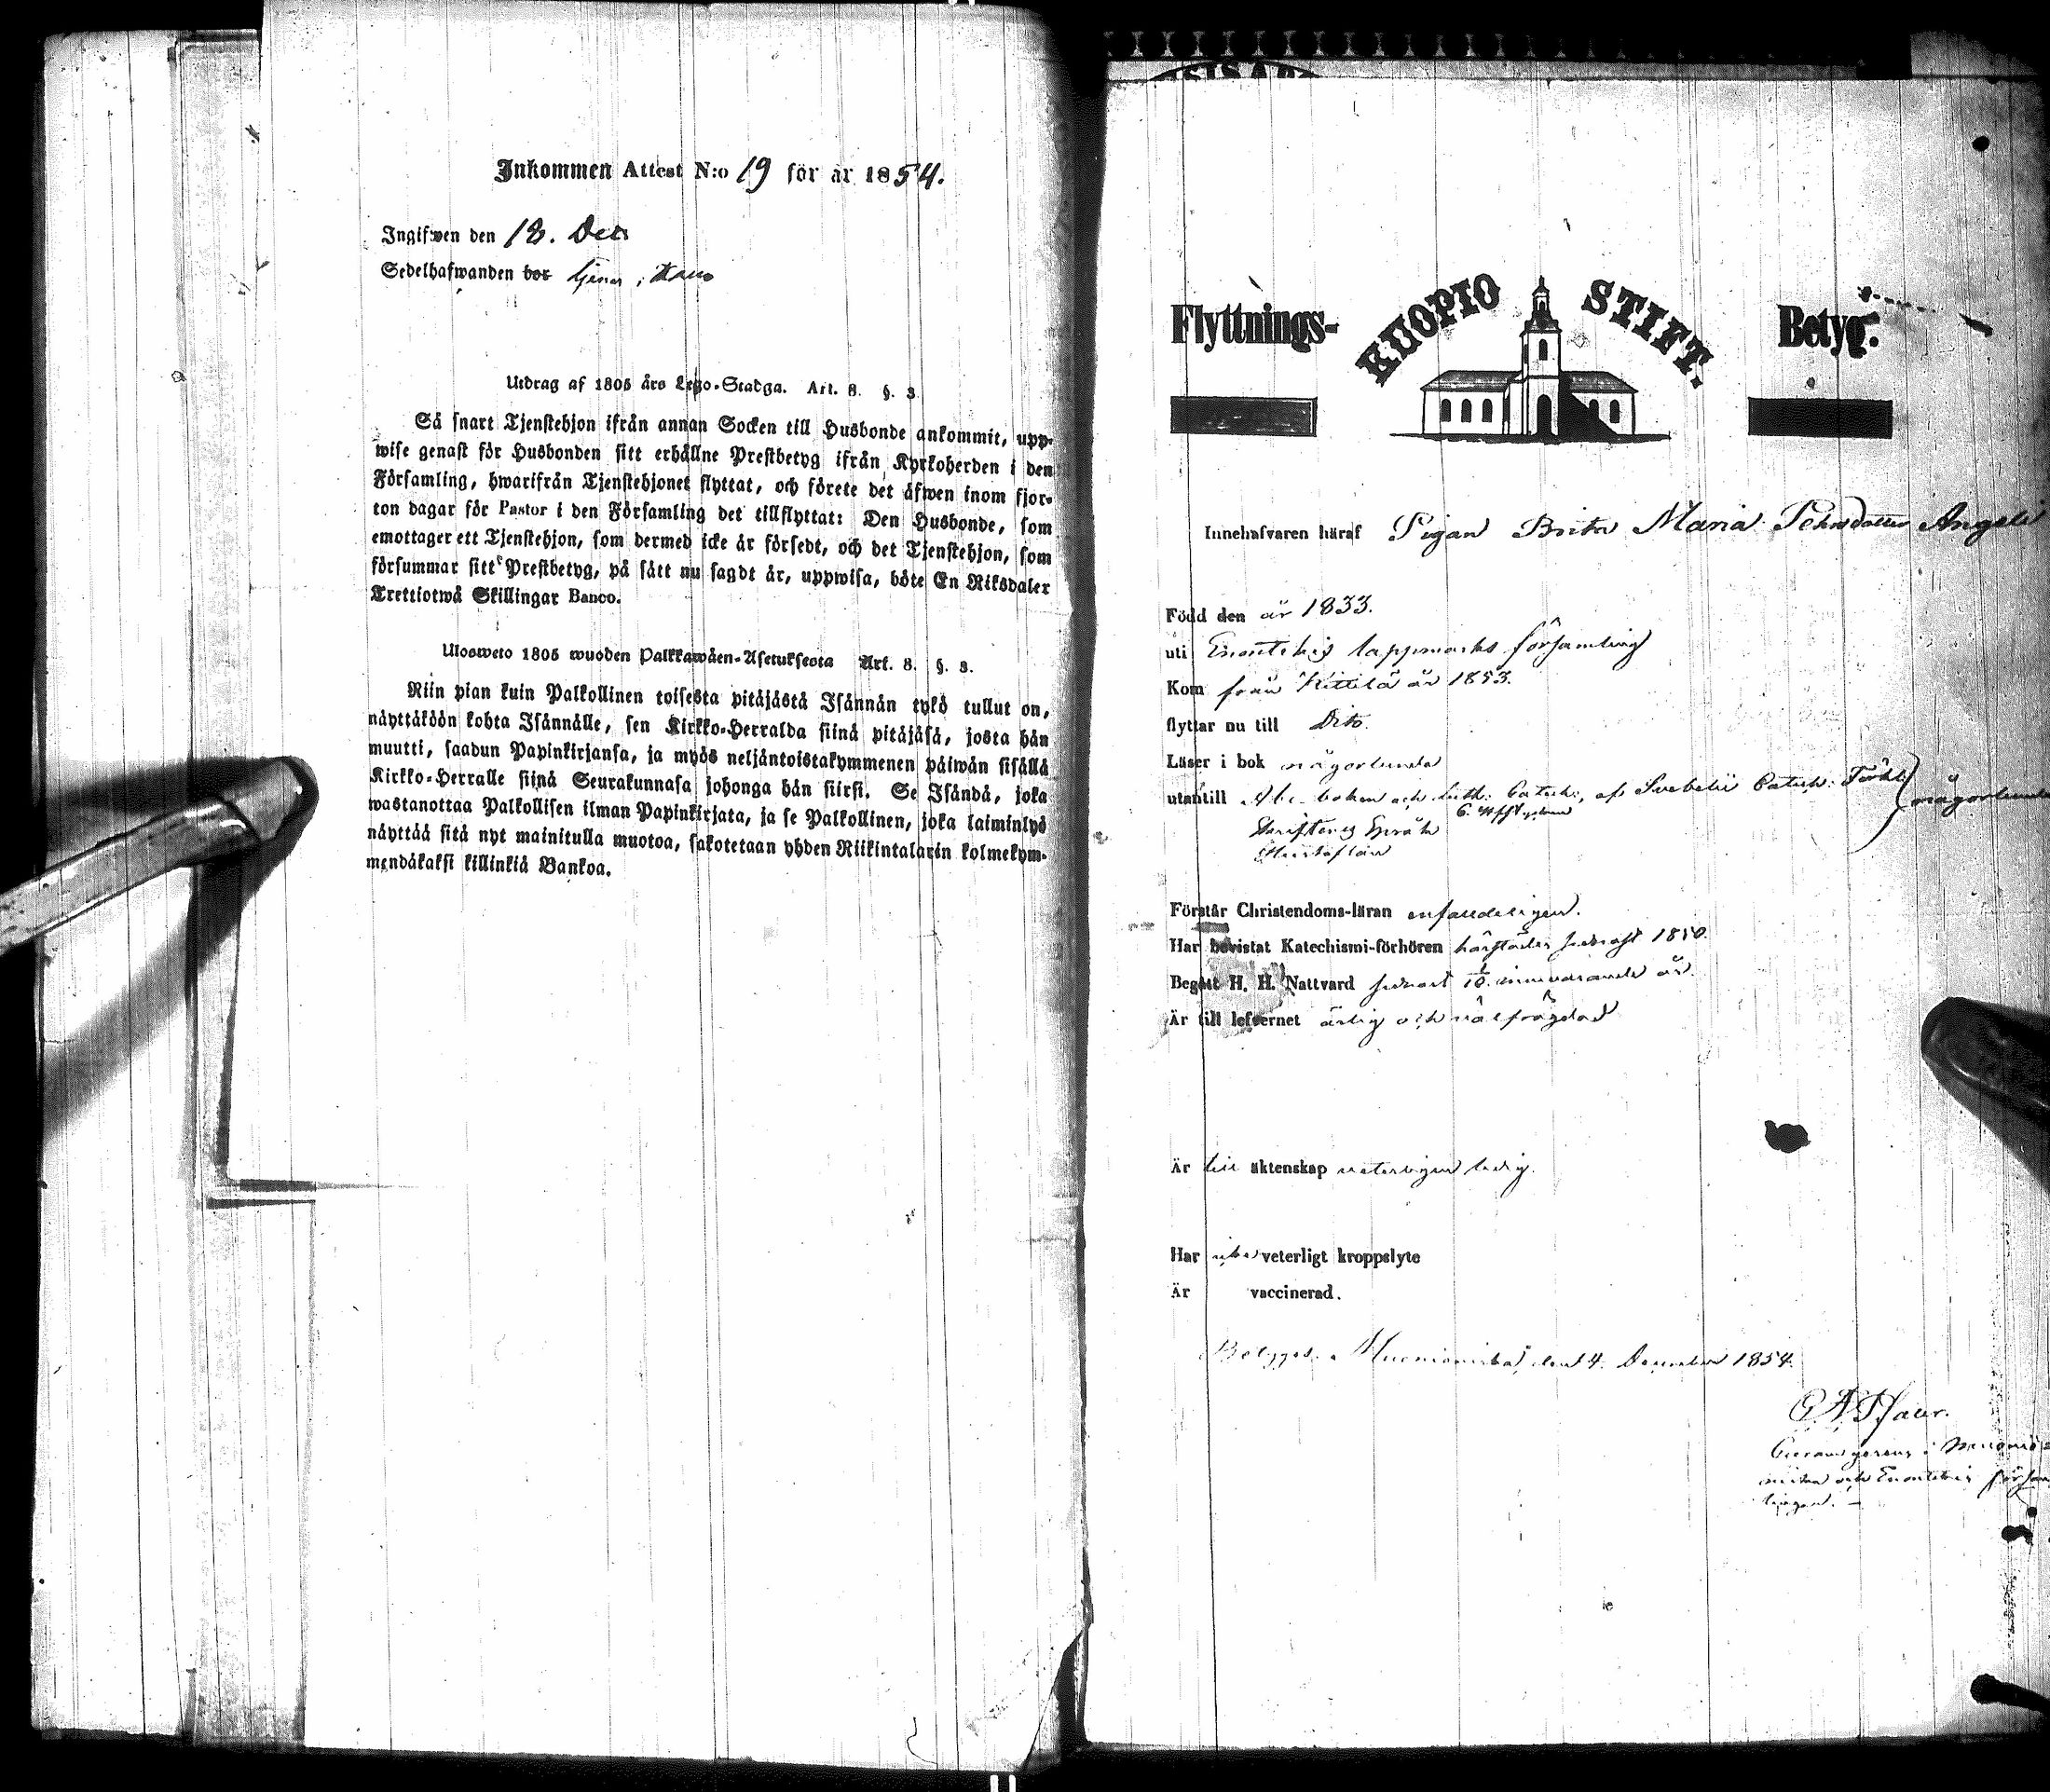 Inkommen Attest N:o 19 för år 1854.
Ingifwen den 18. Dec
Sedelhafwanden bor tjenar i
Utdrag af 1805 års Lego-Stadga. Art. 8. §. 3.
Så snart Tjenstehjon ifrån annan Socken till Husbonde ankommit, upp-
wise genast för Husbonden sitt erhållne Prestbetyg ifrån Kyrkoherden i den
Församling, hwarifrån Tjenstehjonet flyttat, och förete det äfwen inom fjor-
ton dagar för Pastor i den Församling det tillflyttat: Den Husbonde, som
emottager ett Tjenstehjon, som dermed icke är försedt, och det Tjenstehjon, som
försummar sitt Prestbetyg, på sätt nu sagdt är, uppwisa, böte En Riksdaler
Trettiotwå Skillingar Banco.
Ulosweto 1805 wuoden Palkkawäen-Asetuksesta Art. 8. §. 3.
Niin pian kuin Palkollinen toisesta pitäjästä Isännän tykö tullut on,
näyttäköön kohta Isännälle, sen Kirkko-Herralda siinä pitäjäsä, josta hän
muutti, saadun Papinkirjansa, ja myös neljäntoistakymmenen päiwän sisällä
Kirkko-Herralle siinä Seurakunnasa johonga hän siirsi. Se Isändä, joka
wastanottaa Palkollisen ilman Papinkirjata, ja se Palkollinen, joka laiminlyö
näyttää sitä nyt mainitulla muotoa, sakotetaan yhden Riikintalarin kolmekym-
mendäkaksi killinkiä Bankoa.
Flyttnings- KUOPIO STIFT. Betyg.
Innehafvaren häraf Pigan Brita Maria Pehrsdotter Angeli
Född den år 1833.
uti Enontekis lappmarks församling
Kom från Kittilä år 1853.
flyttar nu till Dito.
Läser i bok någorlunda
utantill Abc boken och Luth: Catech:, af Svebelii Catech:
Skriftenes Språk
Hustaflan
Förstår Christendoms-läran enfaldeligen.
Har bevistat Katechismi-förhören härstädes senast 1850.
Begått H. H. Nattvard senast innevarande år.
Är till lefvernet ärlig och välfrägdad
Är till äktenskap veterligen ledig.
Har icke veterligt kroppslyte
Är vaccinerad.
Betygas. Muonioniska den 4. December 1854.
och Enontekis försam
lingar. —